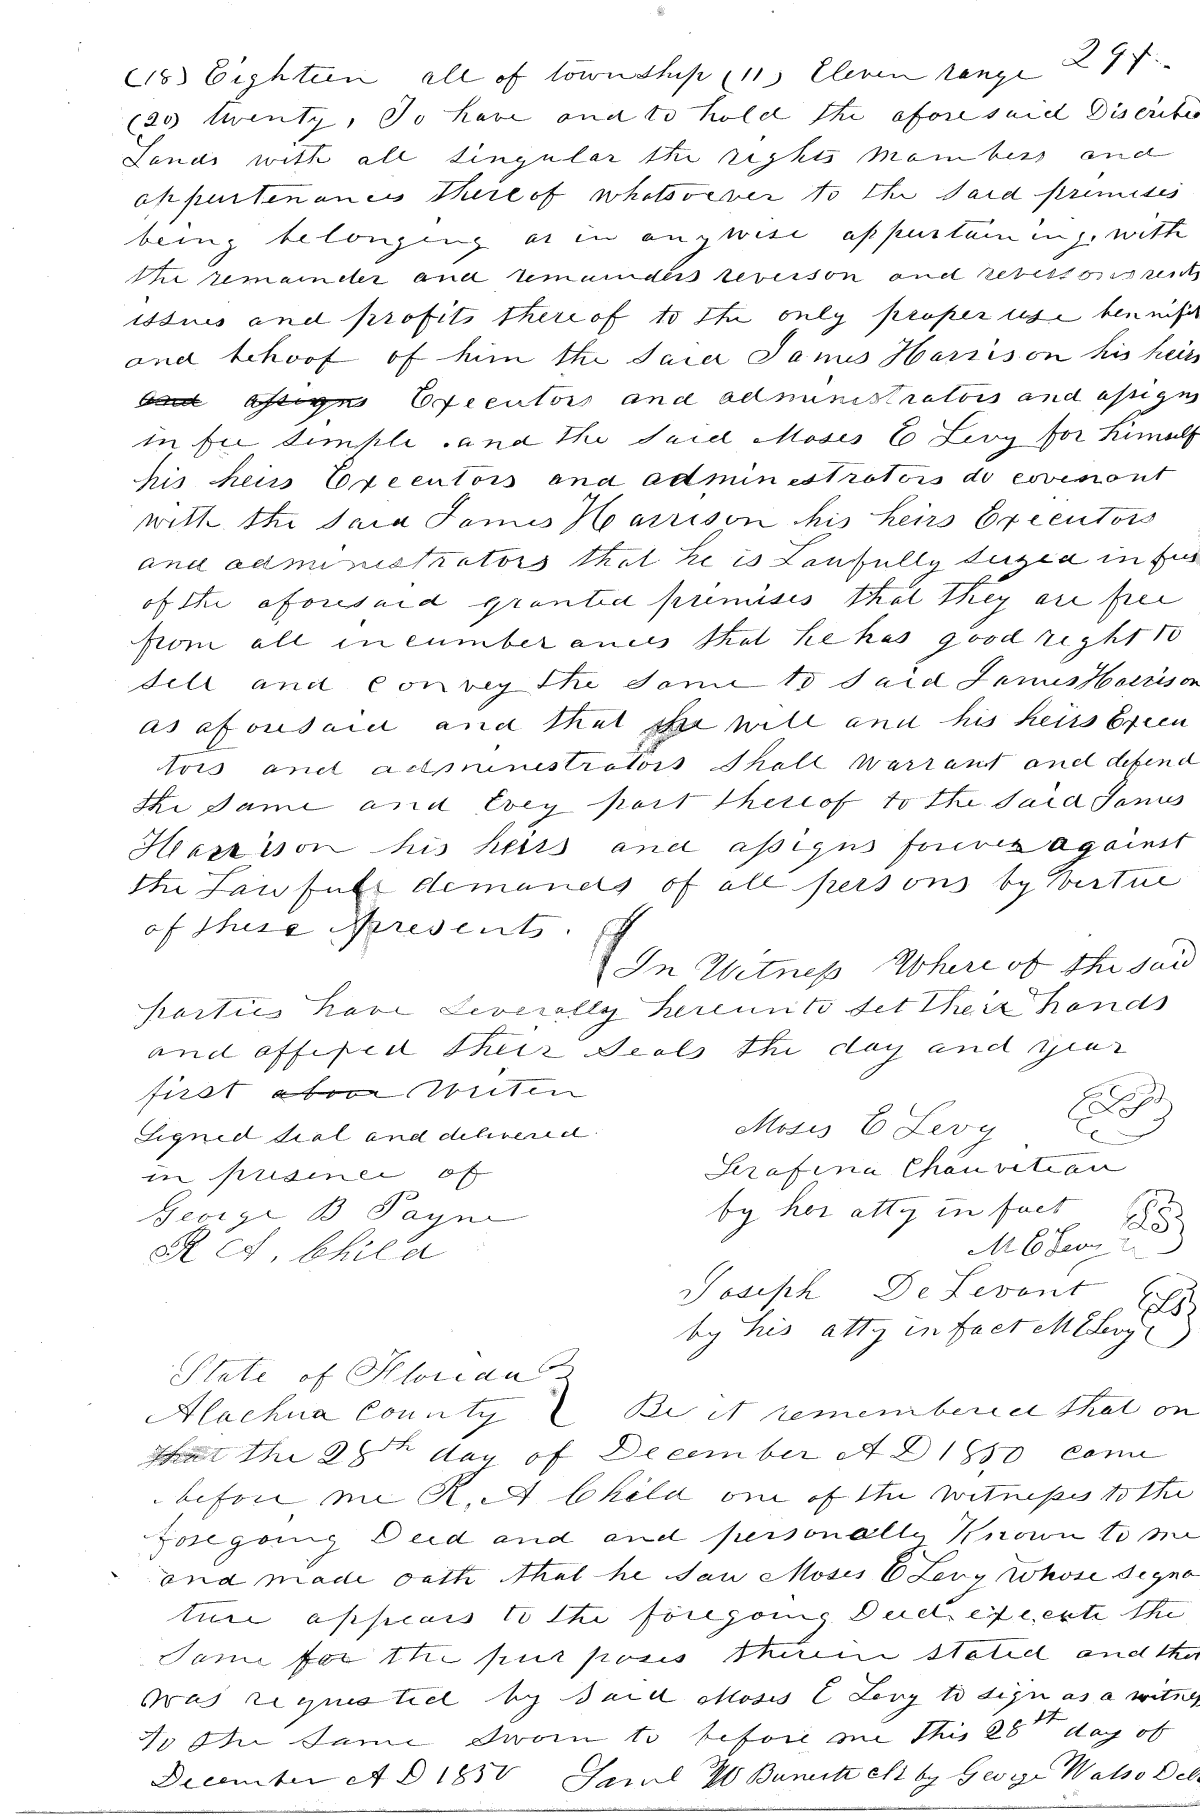 297.
(18) Eighteen all of township (11) Eleven range
(20) twenty, To have and to hold the aforesaid Discribed
Lands with all singular the rights mambers and
appurtenances thereof whatsoever to the said premises
being belonging or in anywise appurtaining, with
the remainder and remainders reverson and reversons rents
issues and profits thereof to the only proper use bennifit
and behoof of him the said James Harrison his heirs
and assigns Executors and administrators and assigns
in fee simple . and the said Moses E Levy for himself
his heirs Executors and adminestrators do covenant
with the said James Harrison his heirs Executors
and adminestrators that he is Lawfully seized in fee
of the aforesaid granted premises that they are free
from all incumberances that he has good right to
sell and convey the same to said James Harrison
as aforesaid and that he will and his heirs Execu
tors and adminestrators shall warrant and defend
the same and Evey part thereof to the said James
Harrison his heirs and assigns forever against
the Lawfull demands of all persons by vertue
of these presents.
In Witness Whereof the said
parties have severally hereunto set their hands
and affixed their seals the day and year
first above writen
Signed seal and delivered
in presence of
George B Payne
R A. Child
Moses E Levy LS
Serafina Chauviteau
by her atty in fact
M E Levy LS
Joseph De Levant
by his atty in fact M E Levy LS
State of Florida
Alachua County } Be it remembered that on
that the 28th day of December A D 1850 came
before me R. A Child one of the witnesses to the
foregoing Deed and and personally Known to me
and made oath that he saw Moses E Levy whose segna
ture appears to the foregoing Deed execute the
same for the purposes therein stated and that
was requested by said Moses E Levy to sign as a witness
to the same sworn to before me this 28th day of
December A D 1850 Saml W Burnett clk by George Watso